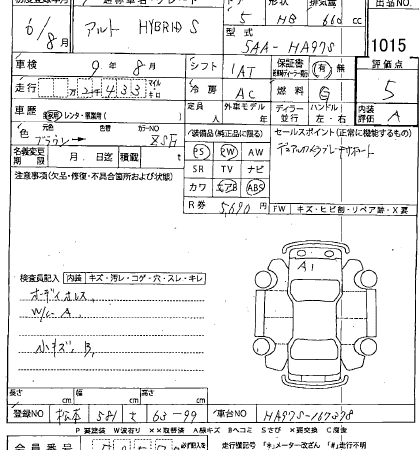 初度登録年月
車種名・グレード
ドア
形状
排気量
出品NO
6/8月
アルト HYBRID S
5
HB
660 cc
型式
5AA-HA97S
1015
車検 9年 8月
シフト IAT
保証書 有 無
評価点
5
走行 万 千 433 マイル キロ
冷房 AC
燃料 G
車歴 自家用・レンタ・事業用( )
定員 人
外車モデル
ディーラー 並行
ハンドル 左・右
内装評価 A
色 ブラウン
カラーNO ZSH
装備品(純正品に限る)
セールスポイント(正常に機能するもの)
デュアルカメラブレーキサポート
名義変更期限 月 日迄
積載 t
PS PW AW
SR TV ナビ
カワ エアB ABS
R券 5,690円
FW キズ・ヒビ割・リペア跡・X要
注意事項(欠品・修復・不具合箇所および状態)
A1
検査員記入 内装 キズ・汚レ・コゲ・穴・スレ・キレ
オーディオレス
W/L A
小キズ B
長さ cm
幅 cm
高さ cm
登録NO 松本 581 て 63-99
車台NO HA97S-167398
P要塗装 W波有り ××取替済 A線キズ Bヘコミ Sさび ×要交換 C腐食
会員番号
走行欄記号 「*」メーター改ざん 「#」走行不明